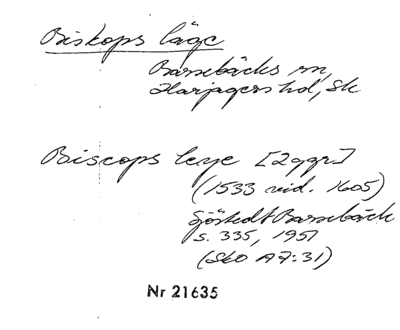 Biskops läge
Barsebäcks sn,
Harjagers hd, Sk
Biscops leye [2ggr]
(1533 vid. 1605)
Sjöstedt Barsebäck
s. 335, 1951
(SkO A7:31)
Nr 21635